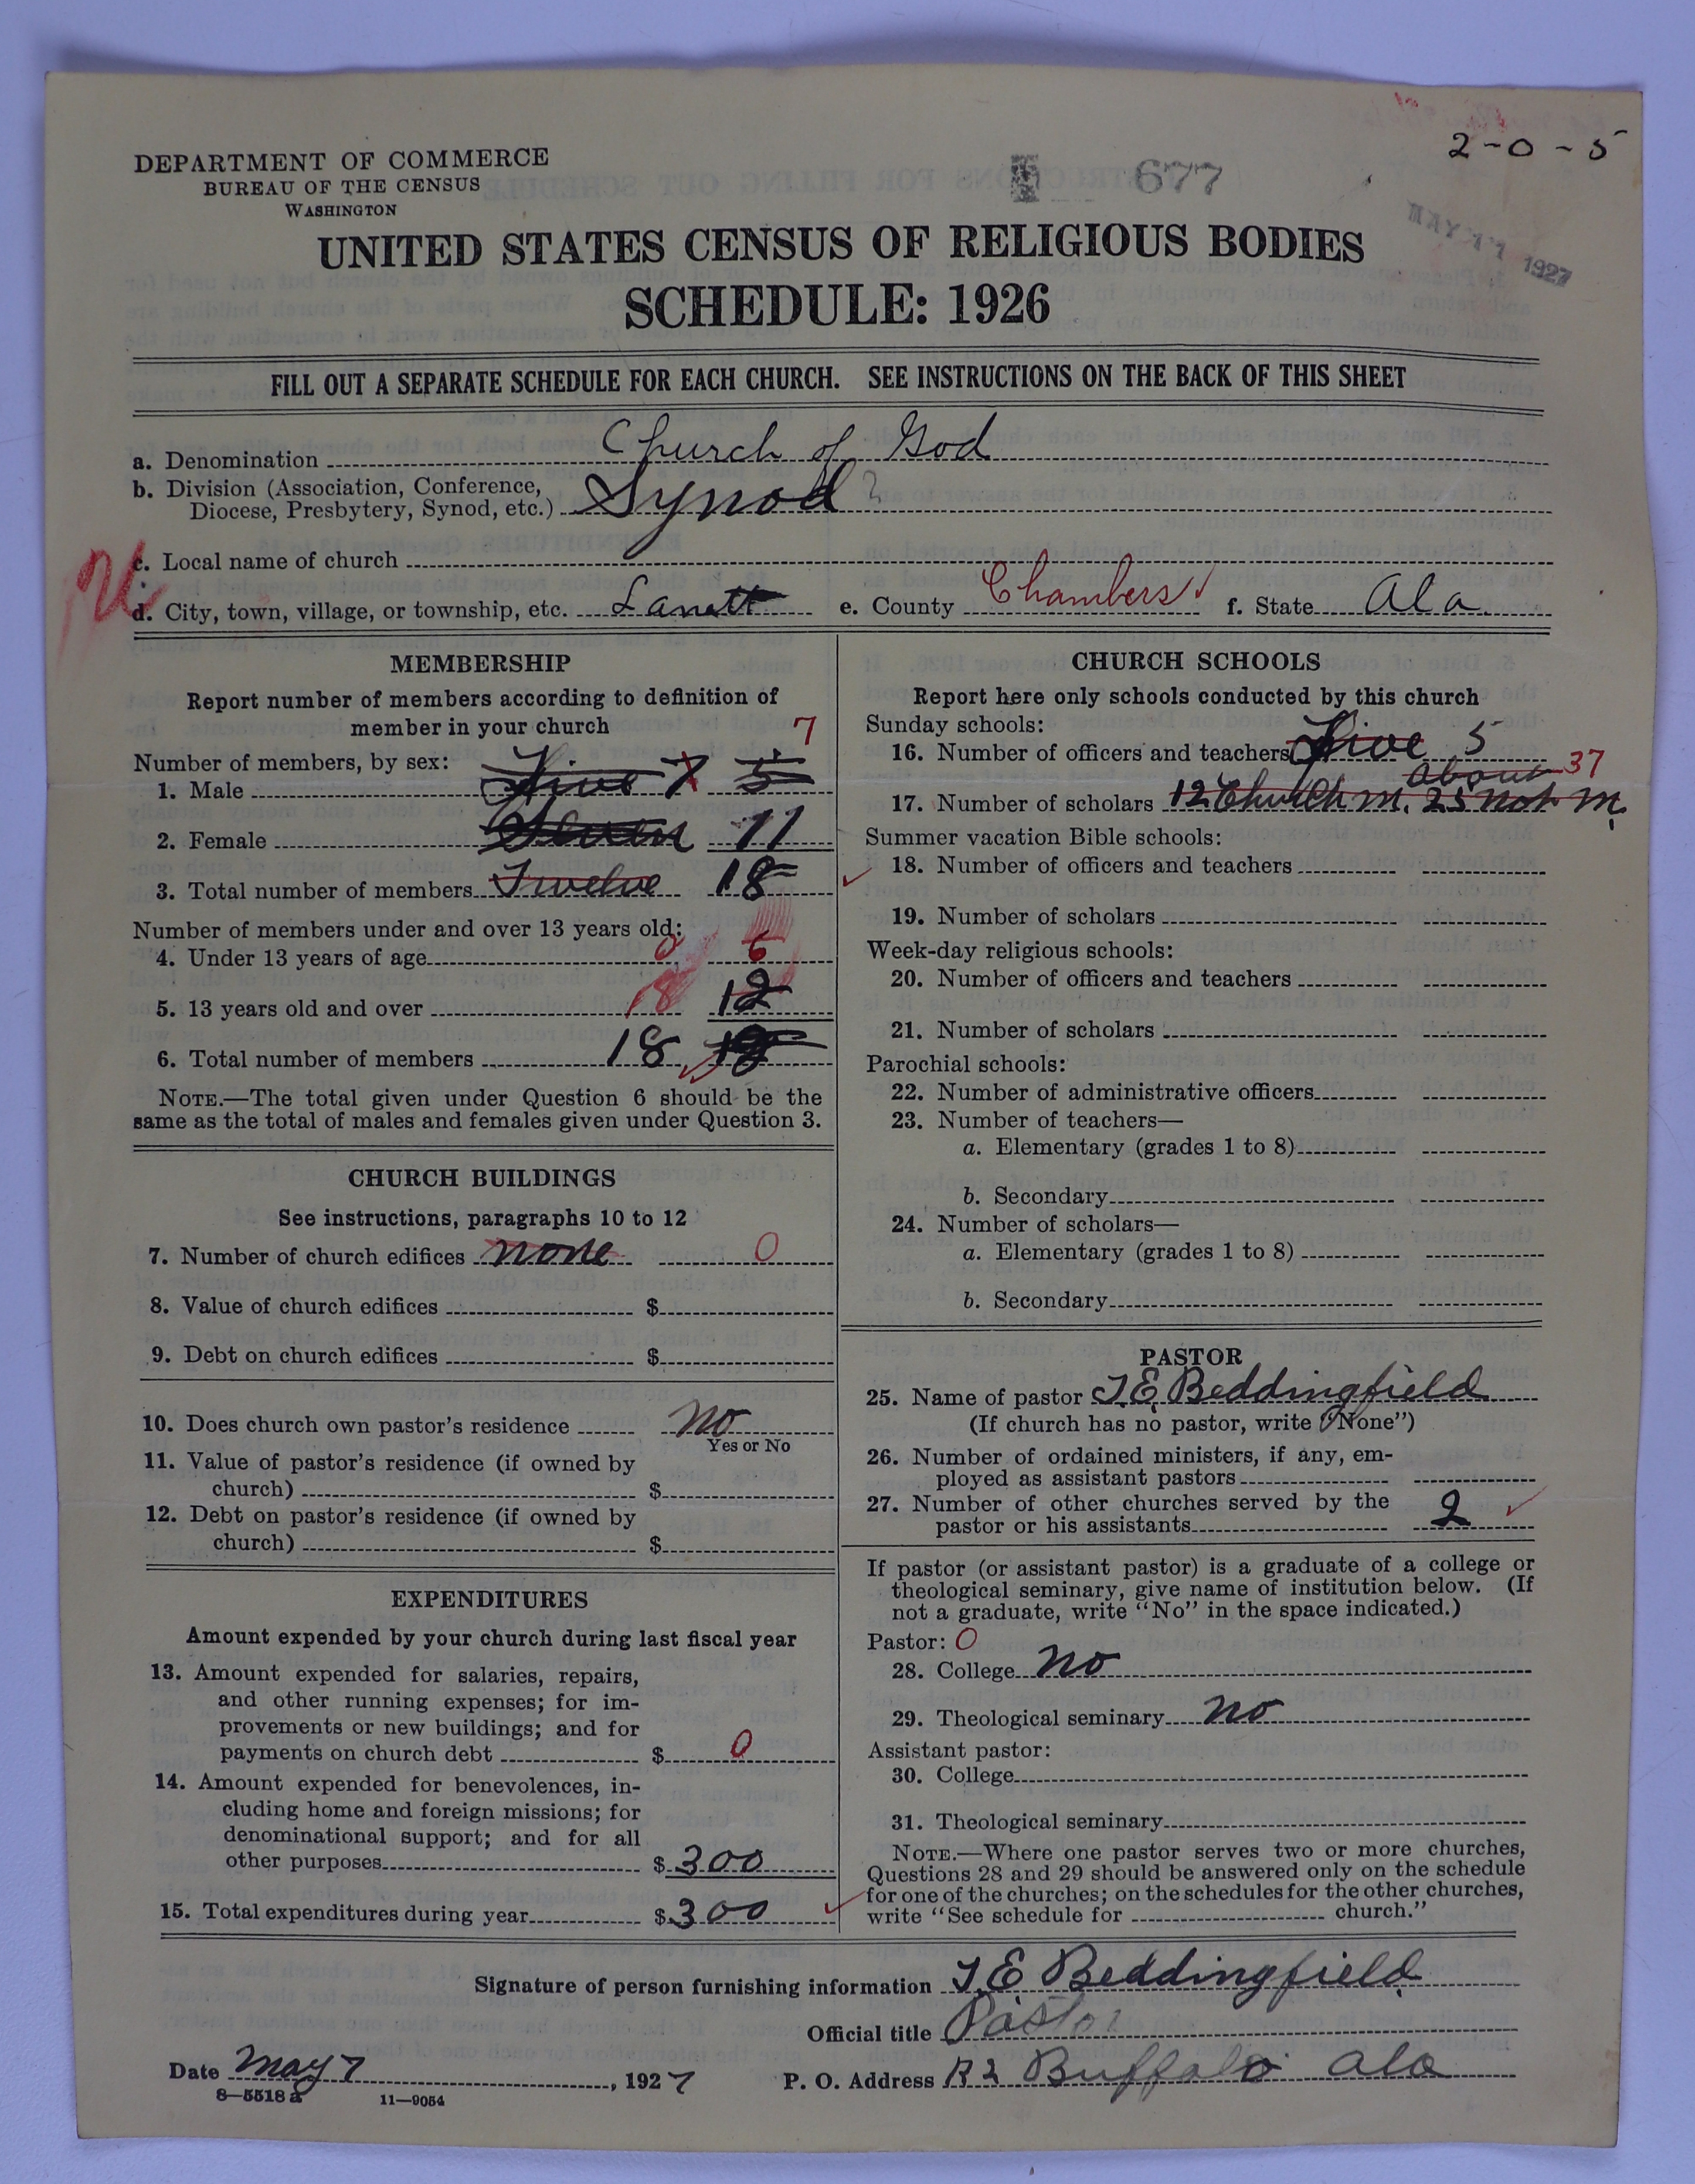 2-0-5
DEPARTMENT OF COMMERCE
BUREAU OF THE CENSUS
WASHINGTON
677
MAY 11 1927
UNITED STATES CENSUS OF RELIGIOUS BODIES
SCHEDULE: 1926
FILL OUT A SEPARATE SCHEDULE FOR EACH CHURCH. SEE INSTRUCTIONS ON THE BACK OF THIS SHEET
a. Denomination Church of God
b. Division (Association, Conference,
Diocese, Presbytery, Synod, etc.) Synod ?
c. Local name of church
d. City, town, village, or township, etc. Lanett e. County Chambers f. State Ala.
MEMBERSHIP
Report number of members according to definition of
member in your church
7
Number of members, by sex:
1. Male Five 7 5
2. Female Seven 11
3. Total number of members Twelve 18
Number of members under and over 13 years old:
4. Under 13 years of age 0 6
5. 13 years old and over 18 12
6. Total number of members 18 18
NOTE.—The total given under Question 6 should be the
same as the total of males and females given under Question 3.
CHURCH BUILDINGS
See instructions, paragraphs 10 to 12
7. Number of church edifices none 0
8. Value of church edifices $
9. Debt on church edifices $
10. Does church own pastor's residence no
Yes or No
11. Value of pastor's residence (if owned by
church) $
12. Debt on pastor's residence (if owned by
church) $
EXPENDITURES
Amount expended by your church during last fiscal year
13. Amount expended for salaries, repairs,
and other running expenses; for im-
provements or new buildings; and for
payments on church debt $ 0
14. Amount expended for benevolences, in-
cluding home and foreign missions; for
denominational support; and for all
other purposes $ 300
15. Total expenditures during year $ 300
CHURCH SCHOOLS
Report here only schools conducted by this church
Sunday schools:
16. Number of officers and teachers Five 5
about 37
17. Number of scholars 12 Church m. 25 not m.
Summer vacation Bible schools:
18. Number of officers and teachers
19. Number of scholars
Week-day religious schools:
20. Number of officers and teachers
21. Number of scholars
Parochial schools:
22. Number of administrative officers
23. Number of teachers—
a. Elementary (grades 1 to 8)
b. Secondary
24. Number of scholars—
a. Elementary (grades 1 to 8)
b. Secondary
PASTOR
25. Name of pastor T. E. Beddingfield
(If church has no pastor, write "None")
26. Number of ordained ministers, if any, em-
ployed as assistant pastors
27. Number of other churches served by the
pastor or his assistants 2
If pastor (or assistant pastor) is a graduate of a college or
theological seminary, give name of institution below. (If
not a graduate, write "No" in the space indicated.)
Pastor: 0
28. College no
29. Theological seminary no
Assistant pastor:
30. College
31. Theological seminary
NOTE.—Where one pastor serves two or more churches,
Questions 28 and 29 should be answered only on the schedule
for one of the churches; on the schedules for the other churches,
write "See schedule for church."
Signature of person furnishing information T. E. Beddingfield
Official title Pastor
Date May 7, 1927 P. O. Address R2 Buffalo Ala
8—5518 a 11—9054